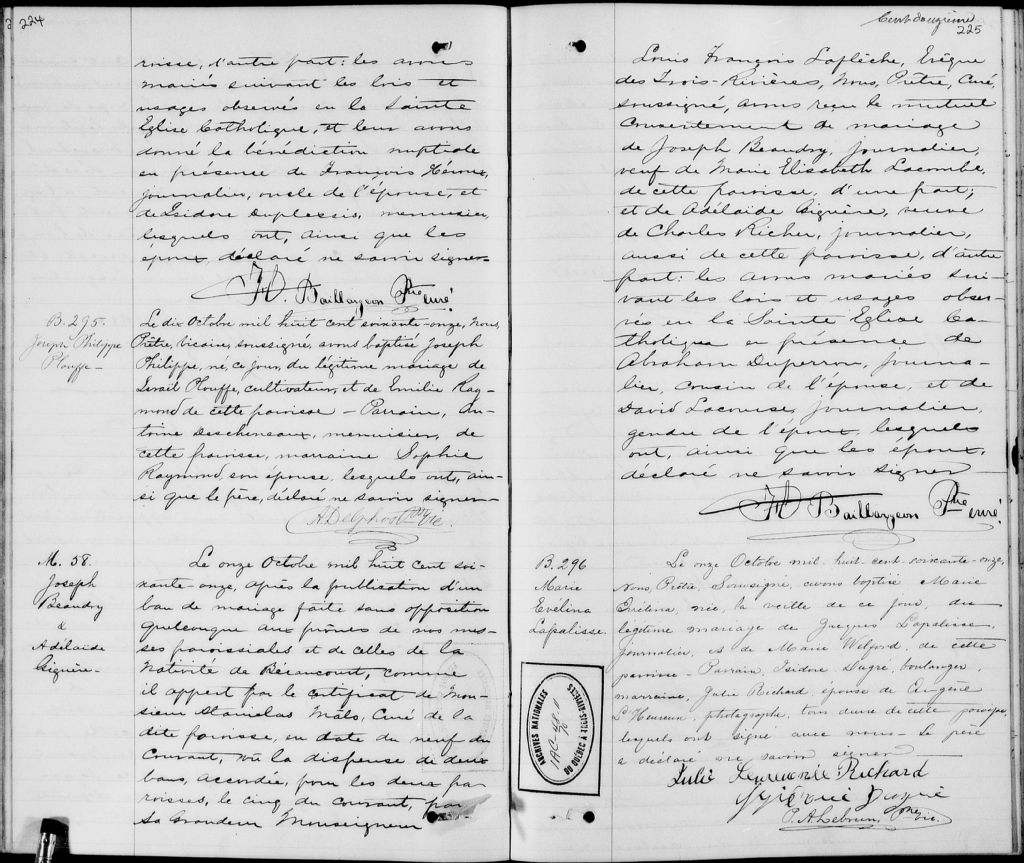 224
roisse, d'autre part: les avons
mariés suivant les lois et
usages observés en la Sainte
Eglise Catholique, et leur avons
donné la bénédiction nuptiale
en présence de François
journalier, oncle de l'épouse, et
de Isidore Duplessis, menuisier,
lesquels ont, ainsi que les
époux, déclaré ne savoir signer
H. Baillargeon Ptre curé
B. 295.
Joseph Philippe
Plouffe
Le dix Octobre mil huit cent soixante-onze, Nous,
Prêtre, vicaire, soussigné, avons baptisé Joseph
Philippe, né, ce jour, du légitime mariage de
Israil Plouffe, cultivateur, et de Emilie Ray-
mond de cette paroisse - Parrain, An-
toine Descheneaux, menuisier, de
cette paroisse, marraine Sophie
Raymond, son épouse, lesquels ont, ain-
si que le père, déclaré ne savoir signer
M. 58.
Joseph
Beaudry
&
Adélaide
Giguère.
Le onze Octobre mil huit cent soi-
xante-onze, après la publication d'un
ban de mariage faite sans opposition
quelconque aux prônes de nos mes-
ses paroissiales et de celles de la
Nativité de Bécancourt, comme
il appert par le certificat de Mon-
sieur Stanislas Malo, Curé de la
dite paroisse, en date du neuf du
Courant, vû la dispense de deux
bans, accordée, pour les deux pa
roisses, le cinq du courant, par
Sa Grandeur Monseigneur
Cent douzième
225
Louis François Laflèche, Evêque
des Trois-Rivières, Nous, Prêtre, Curé,
soussigné, avons reçu le mutuel
Consentement de mariage
de Joseph Beaudry, journalier,
veuf de Marie Elisabeth Lacombe,
de cette paroisse, d'une part;
et de Adélaïde Giguère, veuve
de Charles Richer, journalier,
aussi de cette paroisse, d'autre
part: les avons mariés sui-
vant les lois et usages obser-
vés en la Sainte Eglise Ca-
tholique en présence de
Abraham Duperron, journa-
lier, cousin de l'épouse, et de
David Lacourse, journalier,
gendre de l'époux, lesquels
ont, ainsi que les époux,
déclaré ne savoir signer
H Baillargeon Ptre curé
B. 296
Marie
Evélina
Lapalisse.
Le onze Octobre mil huit cent soixante-onze,
Nous, Prêtre, Soussigné, avons baptisé Marie
Evélina, née, la veille de ce jour, du
légitime mariage de Jacques Lapalisse,
journalier, et de Marie Welford, de cette
paroisse - Parrain, Isidore Dugré, boulanger,
marraine, Julie Richard, épouse de Eugène
L'Heureux, photographe, tous deux de cette paroisse,
lesquels ont signé avec nous - Le père
a déclaré ne savoir signer
Julie Richard
Dugré
P. A Lebrun, Ptre Vic.
ARCHIVES NATIONALES
DU QUÉBEC À TROIS-RIVIÈRES